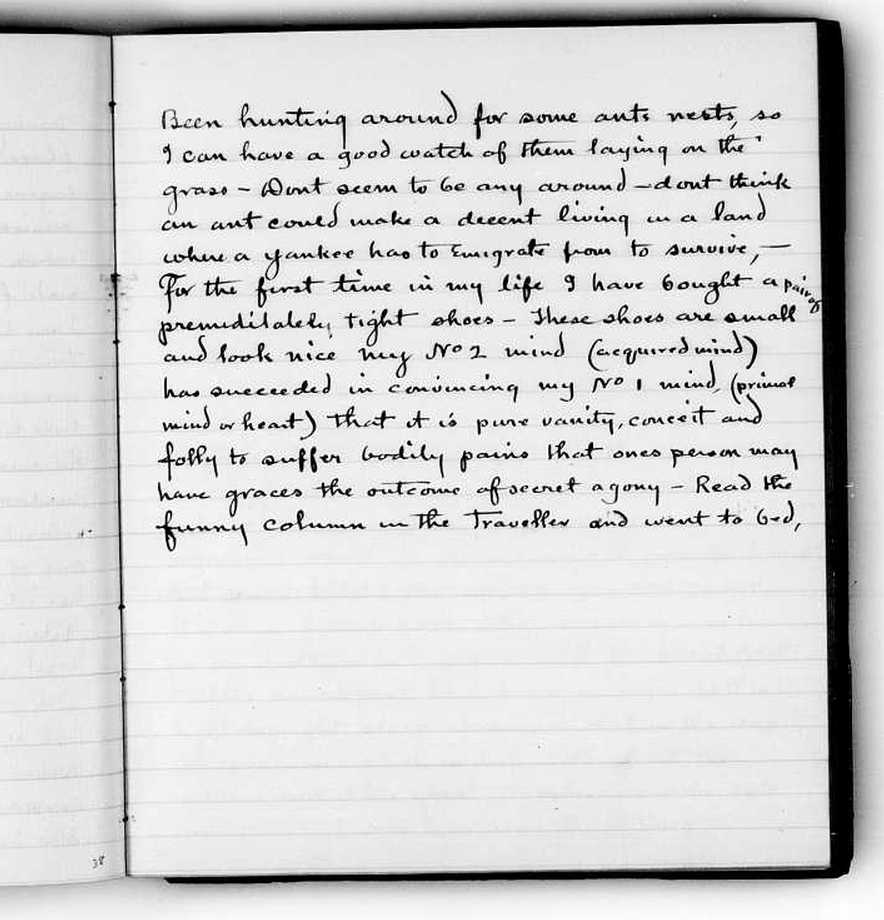 Been hunting around for some ants nests, so
I can have a good watch of them laying on the
grass - Dont seem to be any around - dont think
an ant could make a decent living in a land
where a yankee has to Emigrate from to survive, -
For the first time in my life I have bought a pair of
premeditately tight shoes - These shoes are small
and look nice my No 2 mind (acquired mind)
has succeeded in convincing my No 1 mind (primal
mind or heart) that it is pure vanity, conceit and
folly to suffer bodily pains that ones person may
have graces the outcome of secret agony - Read the
funny column in the Traveller and went to bed,
38